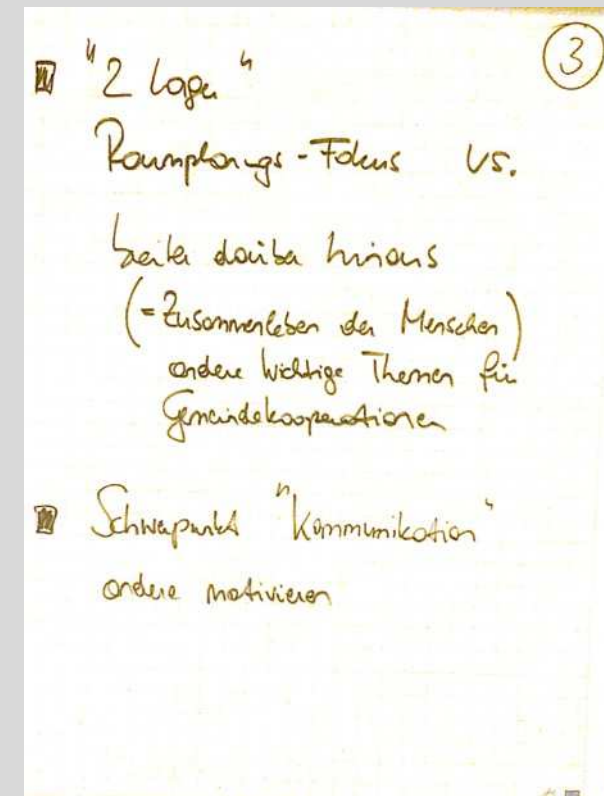 ③
"2 Lager"
Raumplanungs-Fokus vs.
weiter darüber hinaus
(= Zusammenleben der Menschen)
andere wichtige Themen für
Gemeindekooperationen
Schwerpunkt "Kommunikation"
andere motivieren